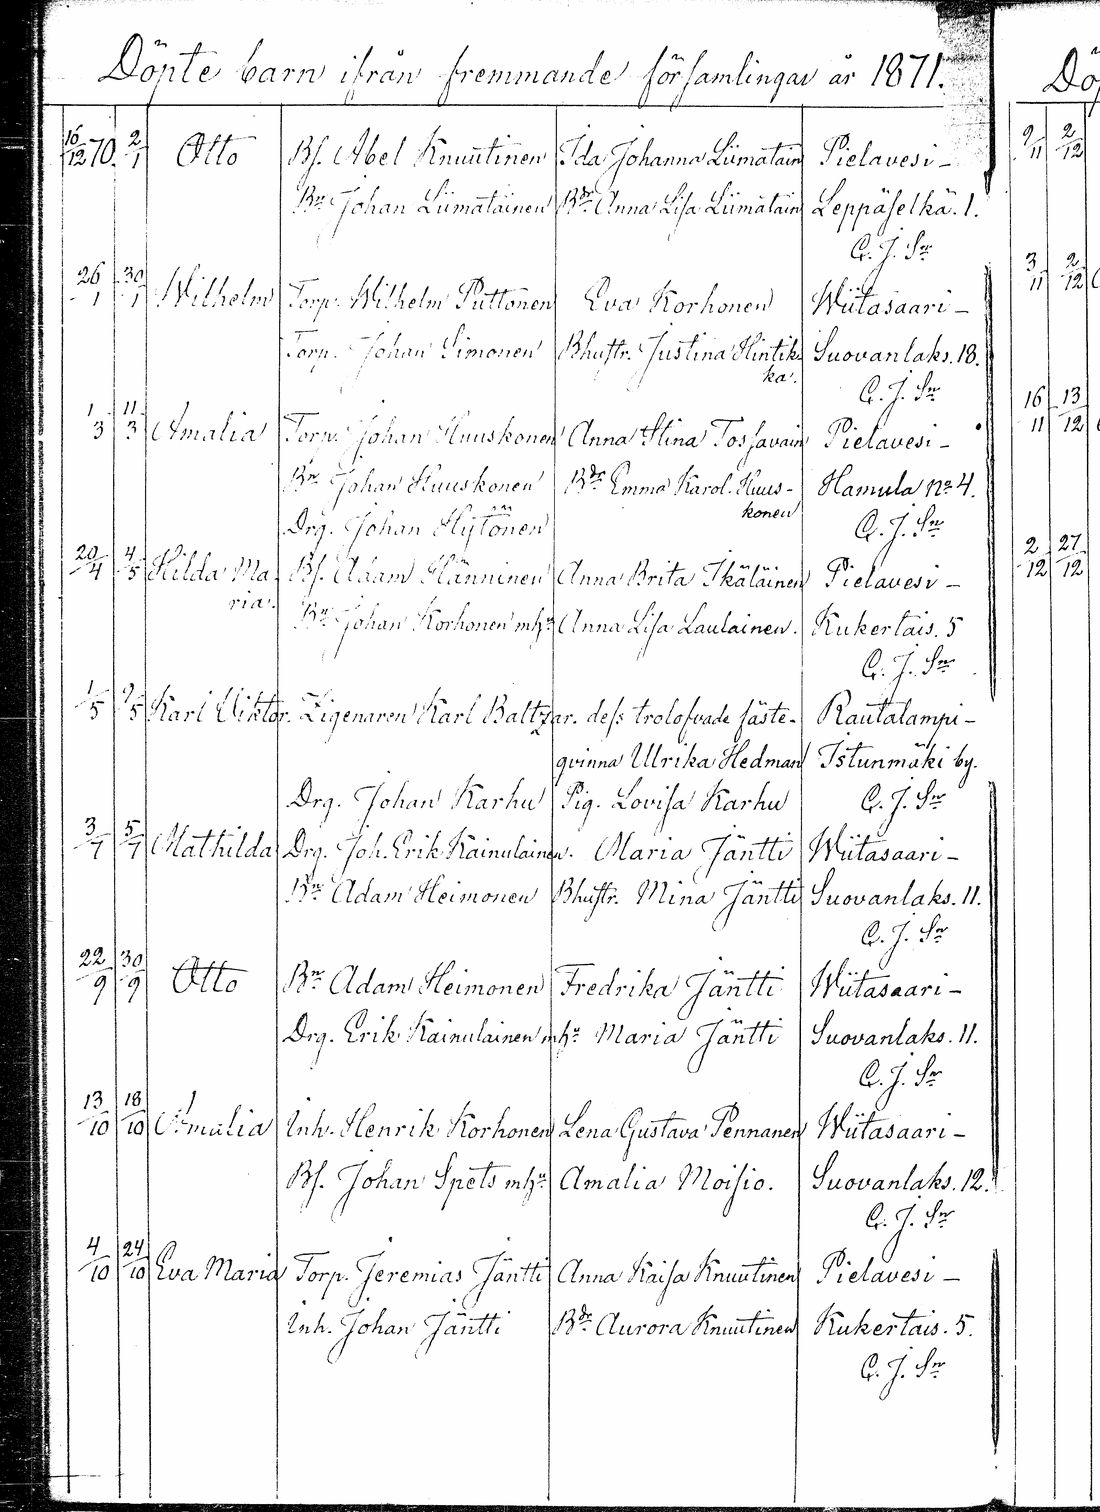 Döpte barn ifrån fremmande församlingar år 1871.
16/12 70. 2/1 Otto Bs. Abel Knuutinen Ida Johanna Liimatain Pielavesi -
Bn Johan Liimatainen Bdr Anna Lisa Liimatain Leppäselkä. 1.
C. J. Sn
26/1 30/1 Wilhelm Torp. Wilhelm Puttonen Eva Korhonen Wiitasaari -
Torp. Johan Simonen Bhustr. Justina Hintik- Suovanlaks. 18.
ka.
C. J. Sn
1/3 11/3 Amalia Torp. Johan Huuskonen Anna Stina Tossavain Pielavesi -
Bn Johan Huuskonen Bdr Emma Karol. Huus- Hamula No 4.
konen
Drg. Johan Hytönen C. J. Sn
20/4 4/5 Hilda Ma- Bs. Adam Hänninen Anna Brita Ikäläinen Pielavesi -
ria.
Bn Johan Korhonen mhu Anna Lisa Laulainen. Kukertais. 5
C. J. Sn
1/5 9/5 Karl Viktor. Zigenaren Karl Baltzar. dess trolofvade fäste- Rautalampi -
qvinna Ulrika Hedman Istunmäki by.
Drg. Johan Karhu Pig. Lovisa Karhu C. J. Sn
3/7 5/7 Mathilda Drg. Joh. Erik Kainulainen. Maria Jäntti Wiitasaari -
Bn Adam Heimonen Bhustr. Mina Jäntti Suovanlaks. 11.
C. J. Sn
22/9 30/9 Otto Bn Adam Heimonen Fredrika Jäntti Wiitasaari -
Drg. Erik Kainulainen mhu Maria Jäntti Suovanlaks. 11.
C. J. Sn
13/10 18/10 Amalia Inh. Henrik Korhonen Lena Gustava Pennanen Wiitasaari -
Bs. Johan Spets mhu. Amalia Moisio. Suovanlaks. 12.
C. J. Sn
4/10 24/10 Eva Maria Torp. Jeremias Jäntti Anna Kaisa Knuutinen Pielavesi -
Inh. Johan Jäntti Bdr Aurora Knuutinen Kukertais. 5.
C. J. Sn
Dö
9/11 2/12
3/11 2/12
16/11 13/12
2/12 27/12